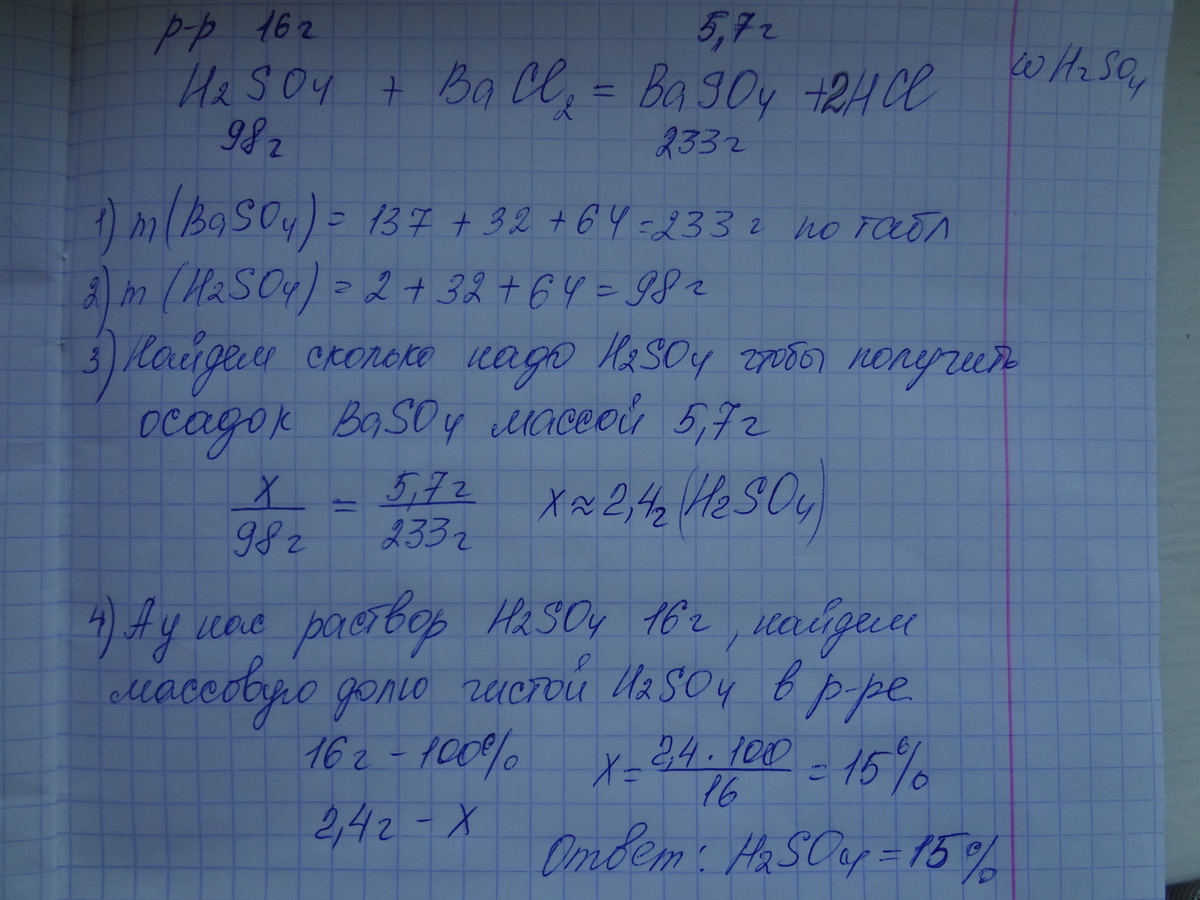 р-р 16г 5,7г
H2SO4 + BaCl2 = BaSO4 + 2HCl ω H2SO4
98г 233г
1) m(BaSO4) = 137 + 32 + 64 = 233 г по табл
2) m (H2SO4) = 2 + 32 + 64 = 98г
3) Найдем сколько надо H2SO4 чтобы получить
осадок BaSO4 массой 5,7г
x/98г = 5,7г/233г x ≈ 2,4г (H2SO4)
4) А у нас раствор H2SO4 16г, найдем
массовую долю чистой H2SO4 в р-ре
16г - 100% x = 2,4 · 100/16 = 15%
2,4г - x
Ответ: H2SO4 = 15%